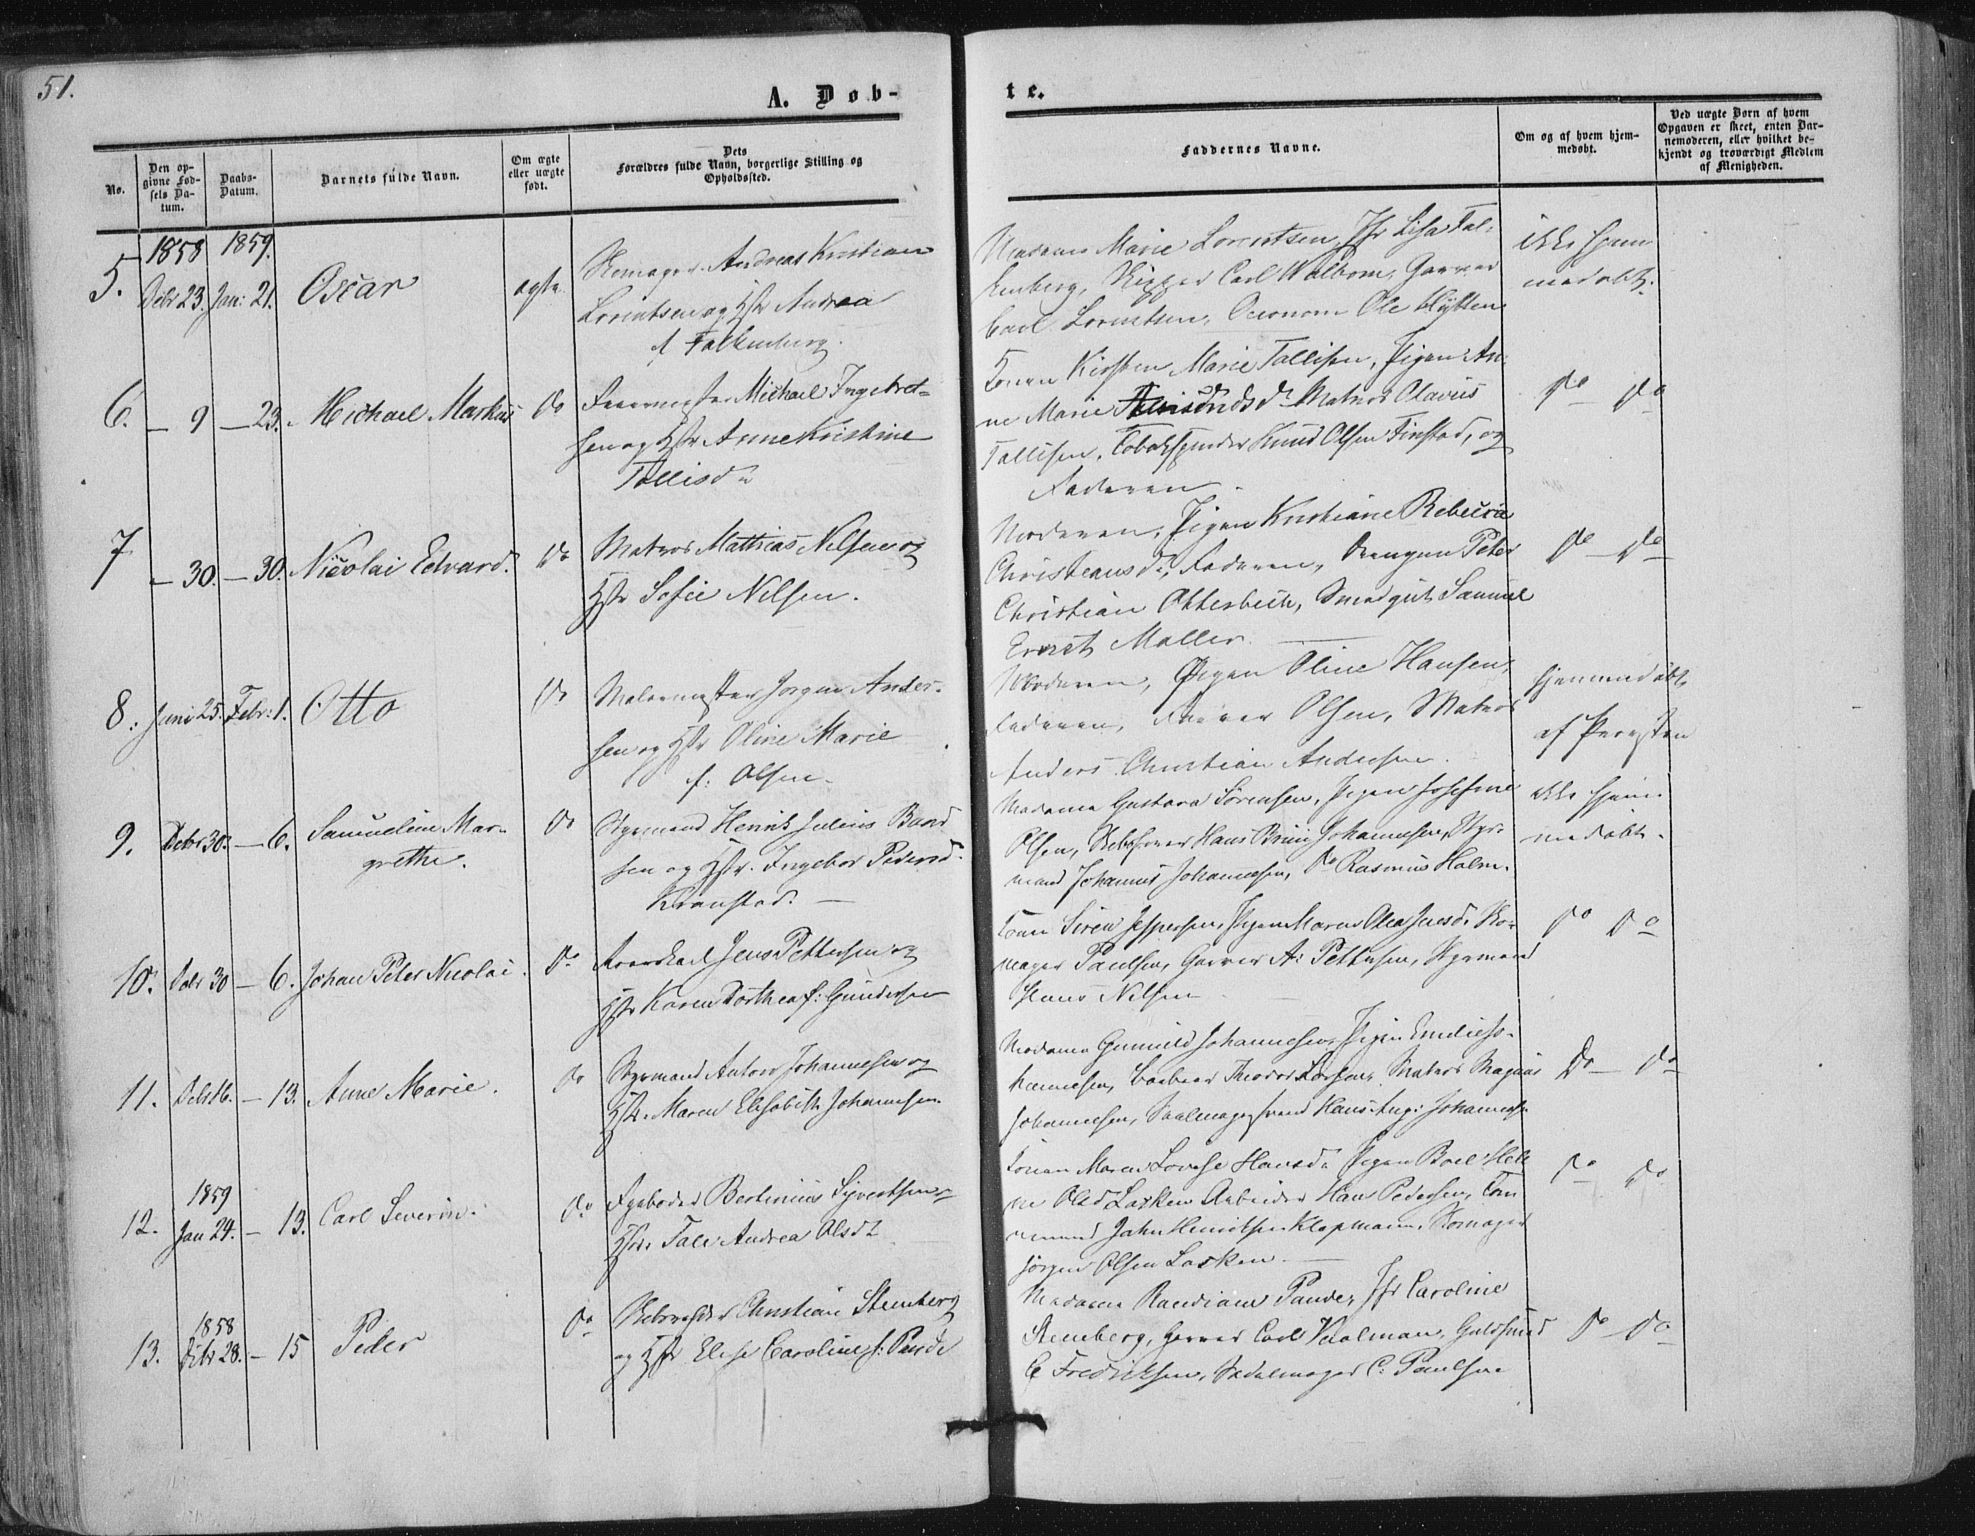 51.
A. Døb-
te.
No.
Den op-
givne Fød-
sels Da-
tum.
Daabs-
Datum.
Barnets fulde Navn.
Om ægte
eller uægte
født.
Dets
Forældres fulde Navn, borgerlige Stilling og
Opholdssted.
Faddernes Navne.
Om og af hvem hjem-
medøbt.
Ved uægte Børn af hvem
Opgaven er skeet, enten Bar-
nemoderen, eller hvilket be-
kjendt og troværdigt Medlem
af Menigheden.
1858 1859.
5. Debr 23. Jan: 21. Oscar ægte
Skomager Andreas Kristian
Lorentsen og Hstr Andrea
f Falkenberg.
Madame Marie Lorentsen, Jfr Lisa Fal-
kenberg, Skipper Carl Walbom, Garver
Carl Lorentsen, Oeconom Ole Hytten
ikke hjem
medøbt.
6. – 9 – 23. Michael Markus do
Farermester Michael Ingebret-
sen og Hstr Anne Kristine
Tollisd.
Konen Kirsten Marie Tollisen, Pigen An-
ne Marie Matros Olavus
Tollisen, Tobakspinder Knud Olsen Finstad, og
Faderen
do – do
7 – 30. – 30. Nicolai Edvard. do
Matros Mathias Nilsen og
Hstr Sofie Nilsen.
Moderen, Pigen Kristiane Rebecca
Christensd., Faderen, Drengen Peter
Christian Otterbech, Smedgut Samuel
Ernst Møller.
do – do
8. Juni 25. Febr: 1. Otto do
Malermester Jørgen Ander-
sen og Hstr Oline Marie
f: Olsen.
Moderen, Pigen Oline Hansen,
Faderen, Olsen, Matros
Anders Christian Andersen.
hjemmedøbt
af Præsten
9. Debr 30. – 6. Samueline Mar-
grethe. do
Styrmand Henrik Julius Band
sen og Hstr. Ingebor Pedersd.
Kranstad.
Madame Gustava Sørensen, Pigen Josefine
Olsen, Hans Bruun Johannesen, Styr-
mand Johannes Johannesen, do Rasmus Holm.
ikke hjem-
medøbt.
10. Debr 30 – 6. Johan Peter Nicolai. do
Jens Pettersen og
Hstr Karen Dorthea f: Gundersen
Konen Siren Jespersen, Pigen Maren Olea Jensd. Sko-
mager Paulsen, Garver A: Pettersen, Styrmand
Hans Nilsen
do do
11. Debr 16. – 13. Anne Marie. do
Styrmand Anton Johannesen og
Hstr. Maren Elisabeth Johannesen.
Madame Gunnild Johannesen, Pigen Emilie Jo-
hannesen, Theodor Larsen, Matros Magnus
Johannesen, Sadelmagersvend Hans Aug: Johannesen
do – do
1859
12. Jan 24. – 13. Carl Severin. do
Bertinius Syvertsen
Hstr. Tale Andrea Olsdt
Konen Maren Lovise Hansd. Pigen Boel Hele
ne Olsd Lasken Arbeider Hans Pedersen, Tøm
mermand John Henriksen Klopmann, Skomager
Jørgen Olsen Lasken
do do
1858
13. Debr 28. – 15 Peder do
Christian Stenberg
og Hstr Elise Caroline f: Pande
Madame Randiane Pande, Jfr Caroline
Stenberg, Garver Carl Vealman, Guldsmed
C Fredriksen, Sadelmager C: Paulsen
do – do